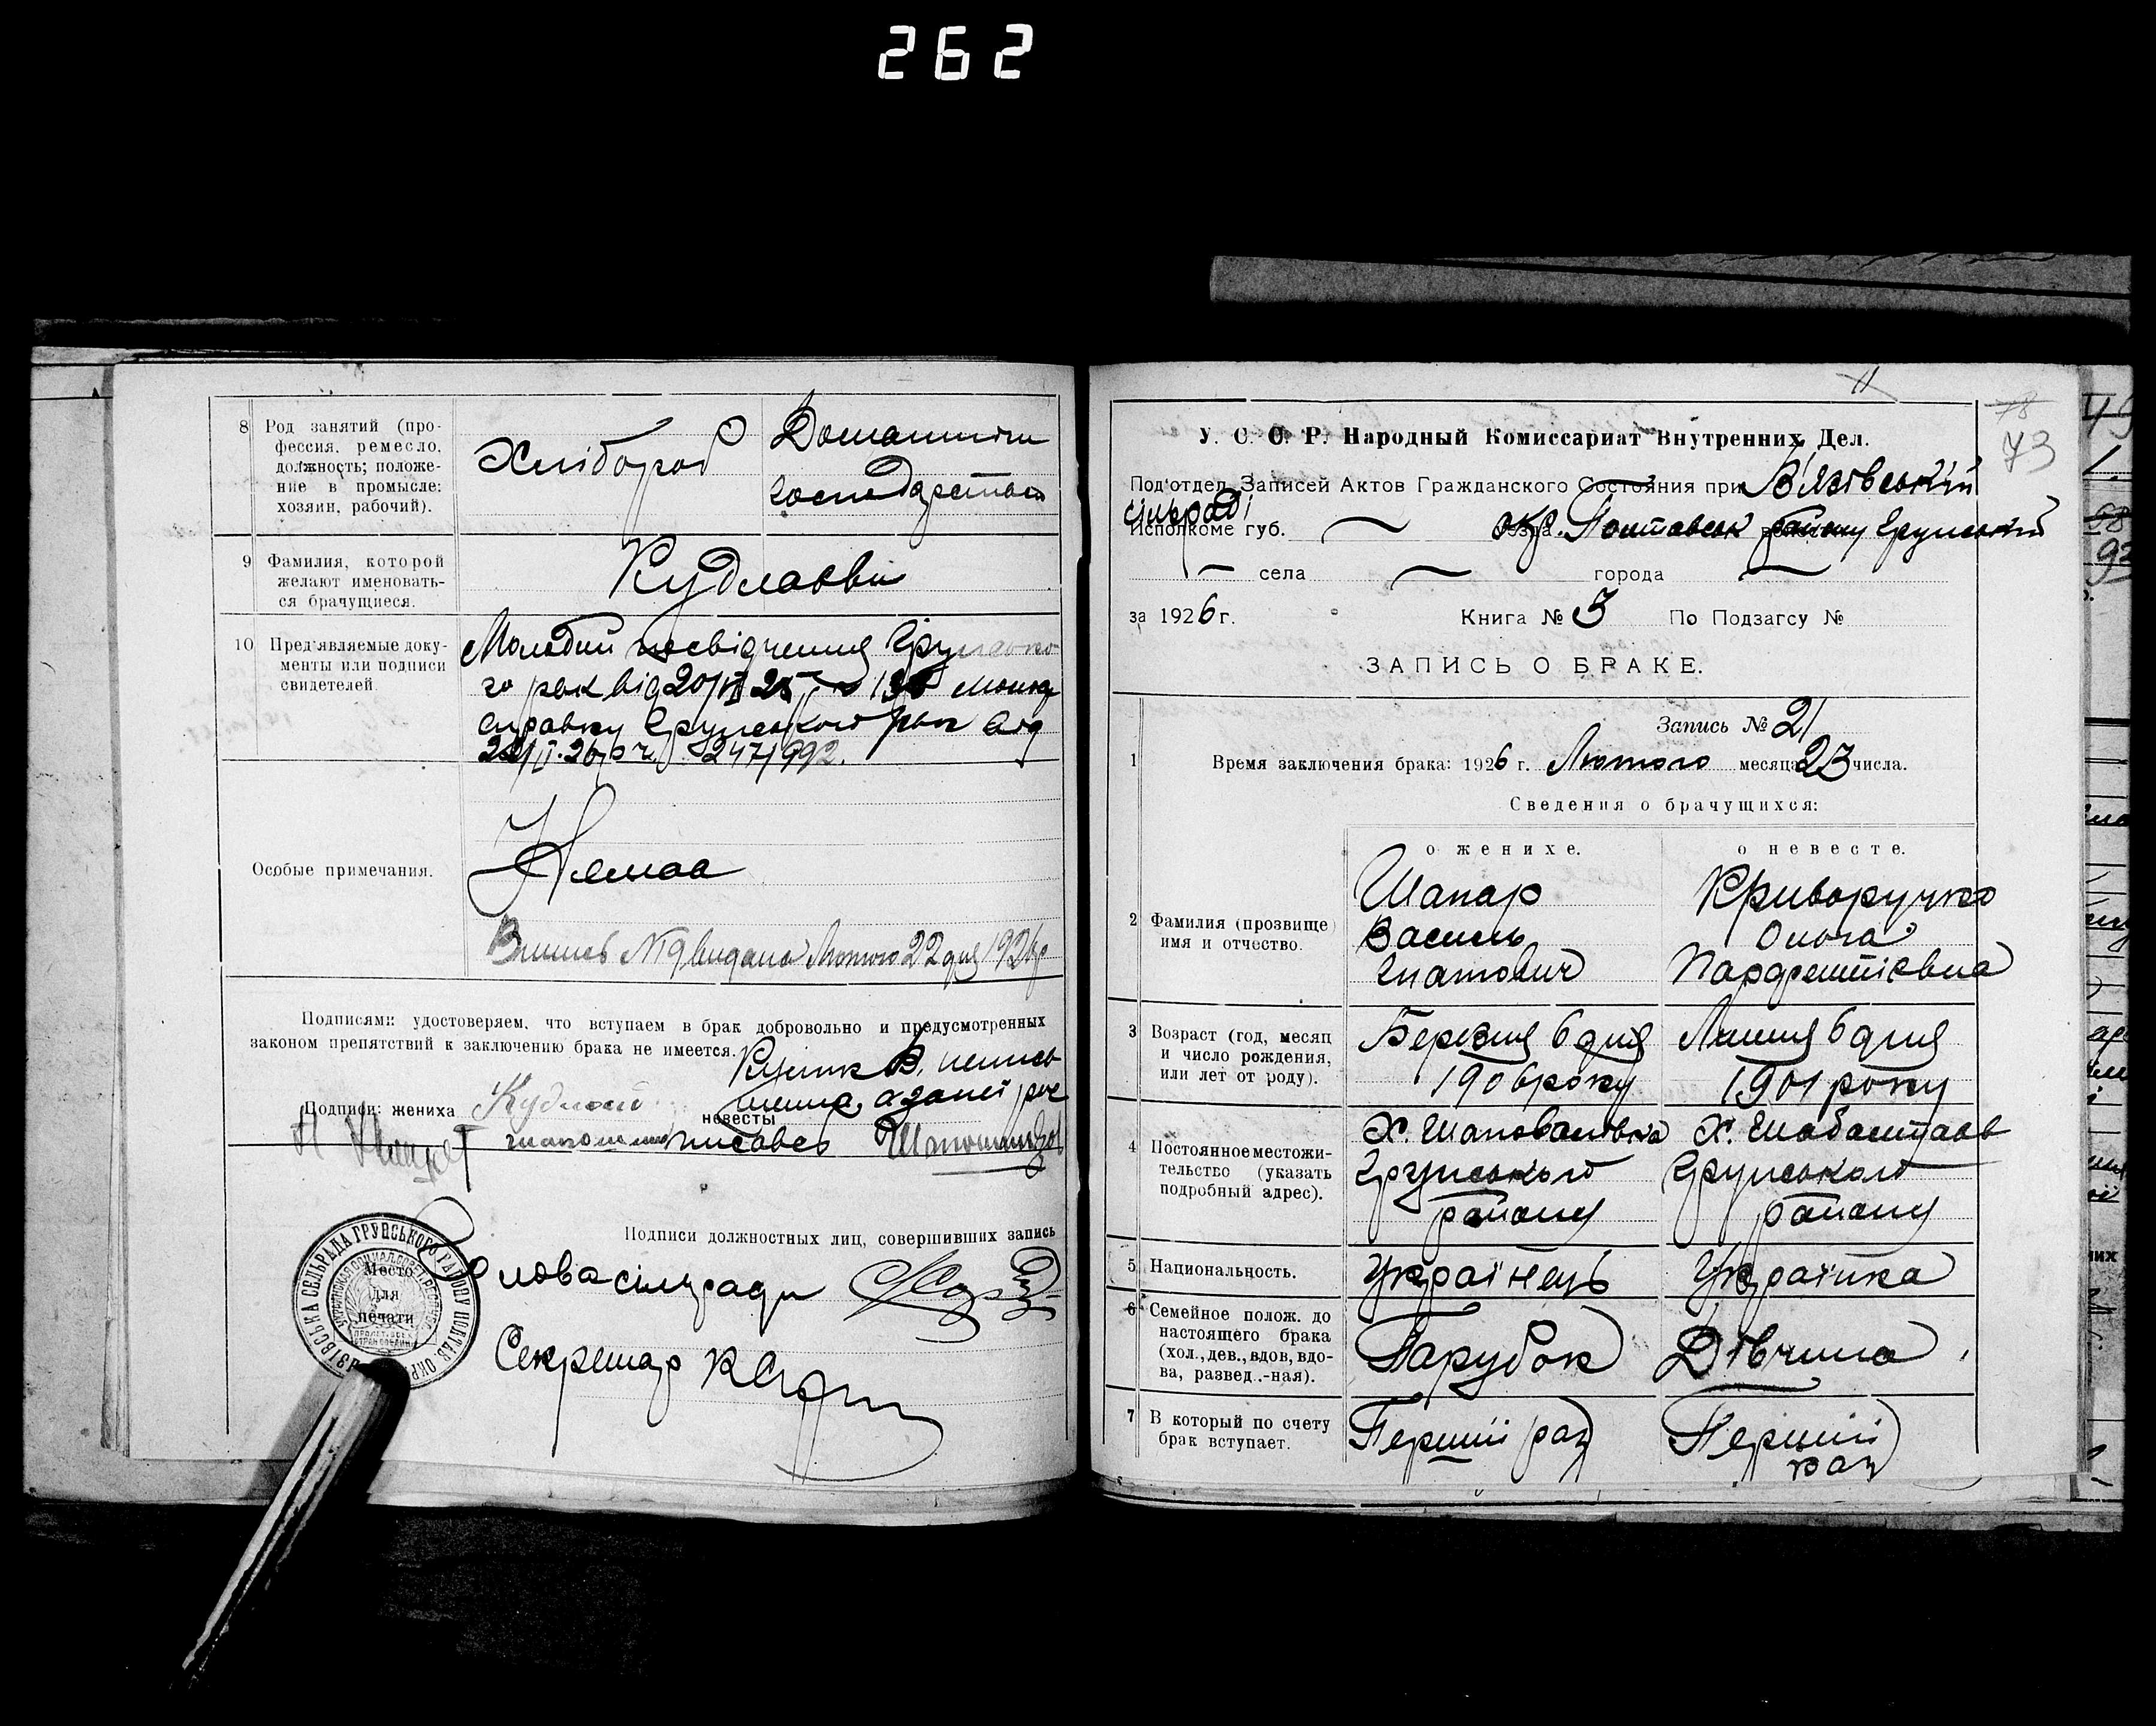 262
8 Род занятий (про-
фессия, ремесло,
должность; положе-
ние в промысле:
хозяин, рабочий).
Хлібороб
Домашнім
господарством
9 Фамилия, которой
желают именовать-
ся брачущиеся.
Кудлаєви
10 Пред'являемые доку-
менты или подписи
свидетелей.
Молодий посвідчення Грунсько-
го рвк від 20/ 25
справку Грунського рвк від
22/II-26 р ч. 247/992.
Особые примечания.
Немає
Випись №19 видана Лютого 22 дня 1926 р
Подписями удостоверяем, что вступаем в брак добровольно и предусмотренных
законом препятствий к заключению брака не имеется.
Подписи: жениха
невесты
а за неї роз
писавсь
Подписи должностных лиц, совершивших запись
Место
для
печати
СЕЛЬРАДА ГРУНСЬКОГО РАЙОНУ ПОЛТАВ. ОКР
Голова сільради
Секретар
11
78
73
У. С. С. Р. Народный Комиссариат Внутренних Дел.
Под'отдел Записей Актов Гражданского Состояния при В'язівський
сільраді
Исполкоме губ. окр. Полтавськ району Грунський
села города
за 1926 г. Книга № 3 По Подзагсу №
ЗАПИСЬ О БРАКЕ.
Запись № 21
1 Время заключения брака: 1926 г. Лютого месяца 23 числа.
Сведения о брачущихся:
о женихе. о невесте.
2 Фамилия (прозвище)
имя и отчество.
Шапар
Василь
Гнатович
Криворучко
Ольга
Парфентіївна
3 Возраст (год, месяц
и число рождения,
или лет от роду).
Березня 6 дня
1906 року
Липня 6 дня
1901 року
4 Постоянное местожи-
тельство (указать
подробный адрес).
Х. Шаповалівка
Грунського
району
Х.
Грунського
району
5 Национальность.
Українець
Українка
6 Семейное полож. до
настоящего брака
(хол., дев., вдов, вдо-
ва, развед.-ная).
Парубок
Дівчина
7 В который по счету
брак вступает.
Перший раз
Перший
раз